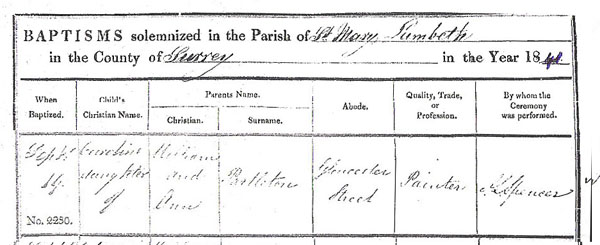 BAPTISMS solemnized in the Parish of St Mary Lambeth
in the County of Surrey in the Year 1841
When Baptized. Child's Christian Name. Parents Name. Abode. Quality, Trade, or Profession. By whom the Ceremony was performed.
Christian. Surname.
Septr Caroline William Gloucester
daughter and Partleton Painter Spencer
of Ann Street
No. 2250.